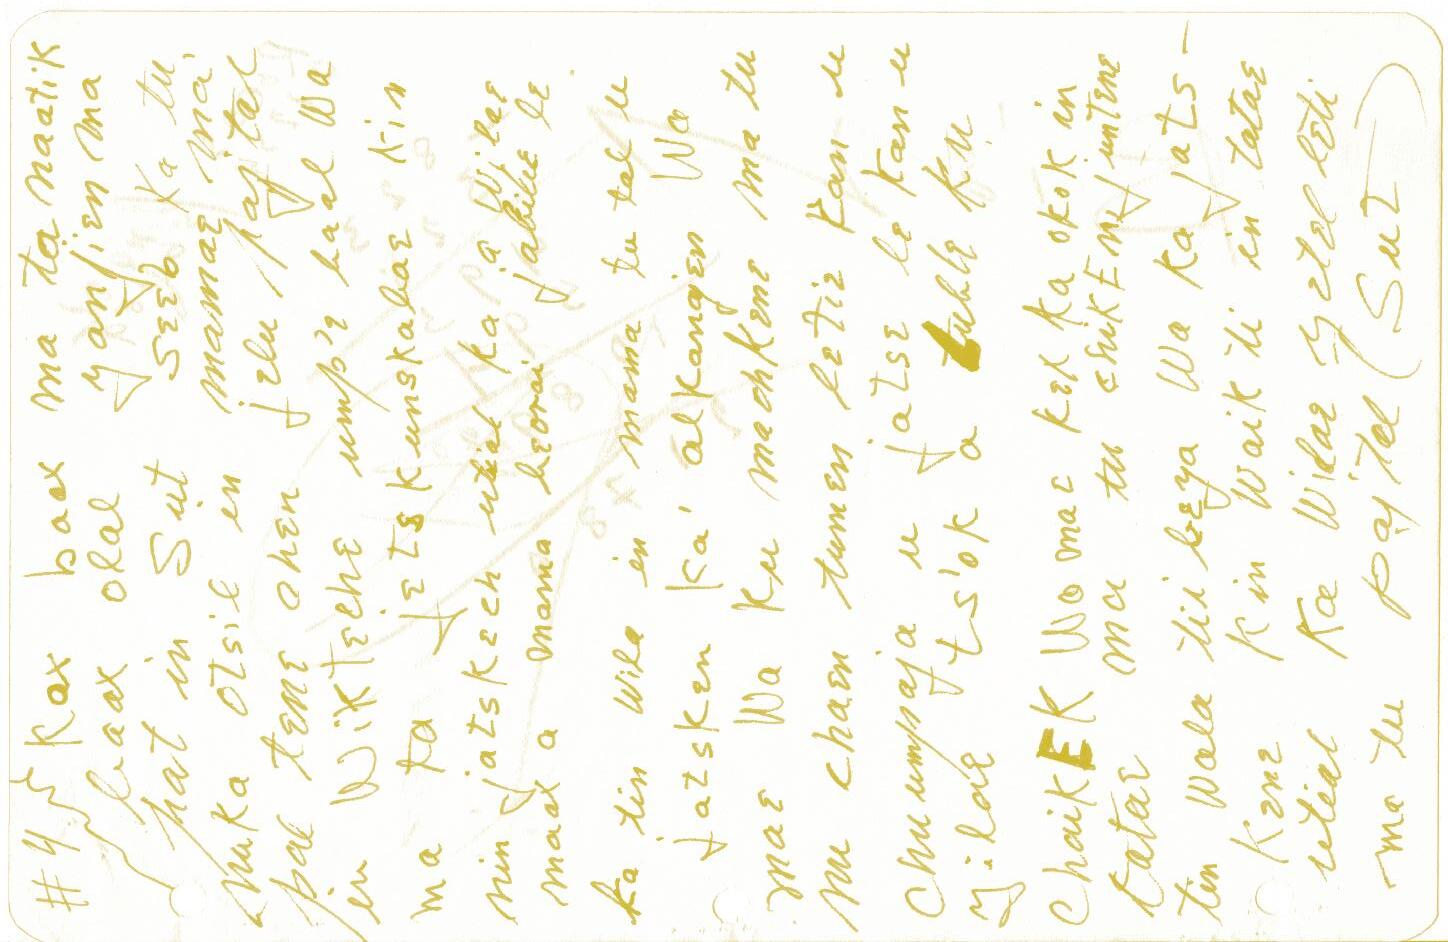 #4 Kax bax ma ta naatik
baax olal yanjen ma
pat in Sut SEEb Ka tu
puka otsil in mamaE ma
pal tEnE OhEn jElu pajtal
in WiKtEhE ump'E baal Wa
ma ta jEts KunsKabaE Kin
nin jatsKEch utial Ka a WilaE
maax a mama bEorai. jabilE lE
ka tin Wila in mama tu tal u
jatsKEn Ka' alKanajEn Wa
maE Wa Ku machKEnE ma tu
nu chaEn tumEn lEtiE Kan u
Chuumpaja u jatsE lE Kan u
yilaE ts'oK a tuble Ku
ChaiKEK WomaE KEx Ka oKoK in
tataE ma tu chuKEnu yuntEnE
tin Wala tii bEya Wa Ka jats-
KEnE Kin WaiK ti in tataE
utial Ka WilaE yEtEl lEti
ma tu pajtal (SuT)